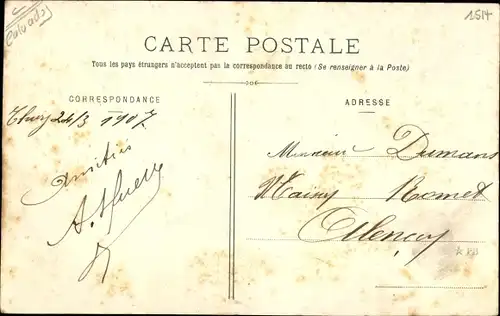 Calvados
2514
CARTE POSTALE
Tous les pays étrangers n'acceptent pas la correspondance au recto (Se renseigner à la Poste)
CORRESPONDANCE
24/3 1907
Amitiés
ADRESSE
Monsieur Dumans
Romet
Alençon